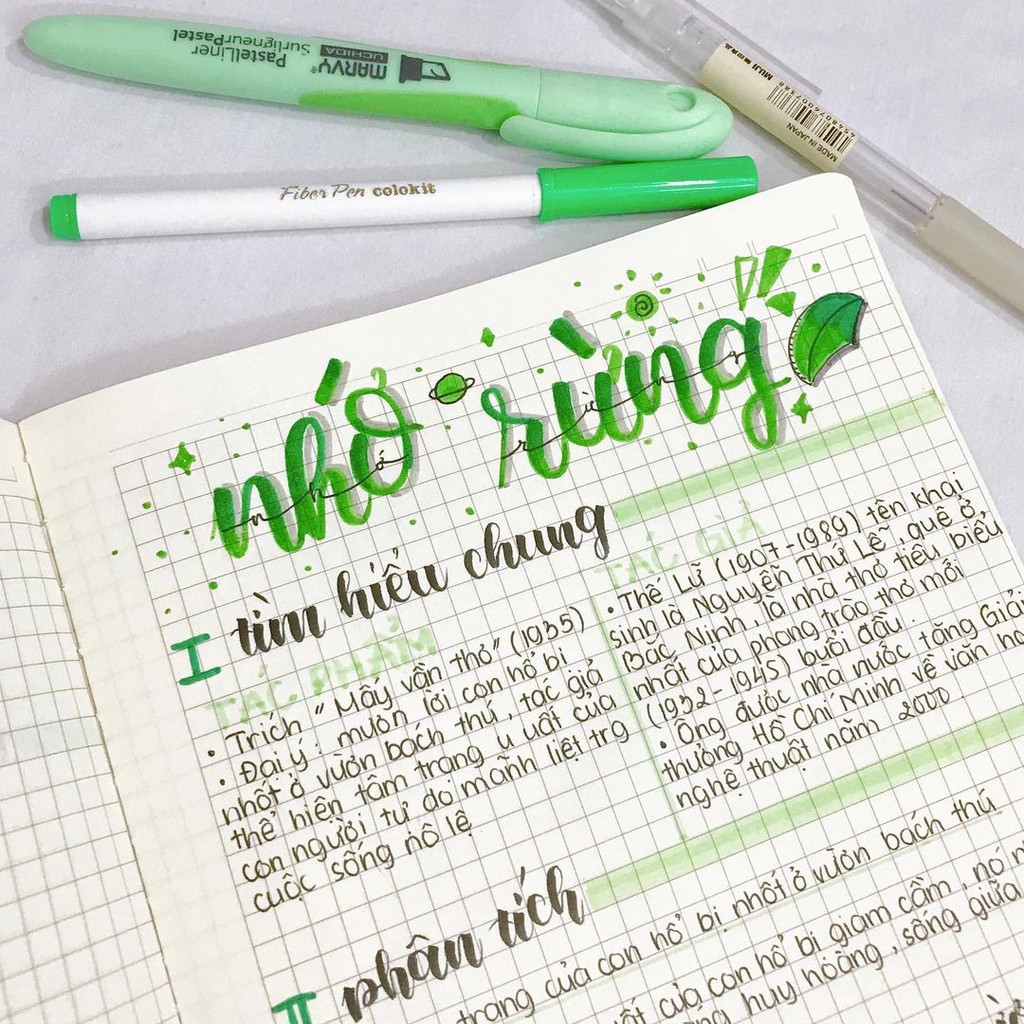 PastelLiner
SurligneurPastel
MARVY®
UCHIDA
MUJI 無印良品
4548076007388
MADE IN JAPAN
Fiber Pen colokit
nhớ rừng
nhớ rừng
I tìm hiểu chung
TÁC PHẨM
• Trích "Mấy vần thơ" (1935)
• Đại ý: mượn lời con hổ bị
nhốt ở vườn bách thú, tác giả
thể hiện tâm trạng u uất của
con người tự do mãnh liệt trg
cuộc sống nô lệ
TÁC GIẢ
• Thế Lữ (1907-1989) tên khai
sinh là Nguyễn Thứ Lễ, quê ở
Bắc Ninh, là nhà thơ tiêu biểu
nhất của phong trào thơ mới
(1932-1945) buổi đầu.
• Ông được nhà nước tặng Giải
thưởng Hồ Chí Minh về văn
nghệ thuật năm 2000
II phân tích
trạng của con hổ bị nhốt ở vườn bách thú
của con hổ bị giam cầm, nó
huy hoàng, sống giữa